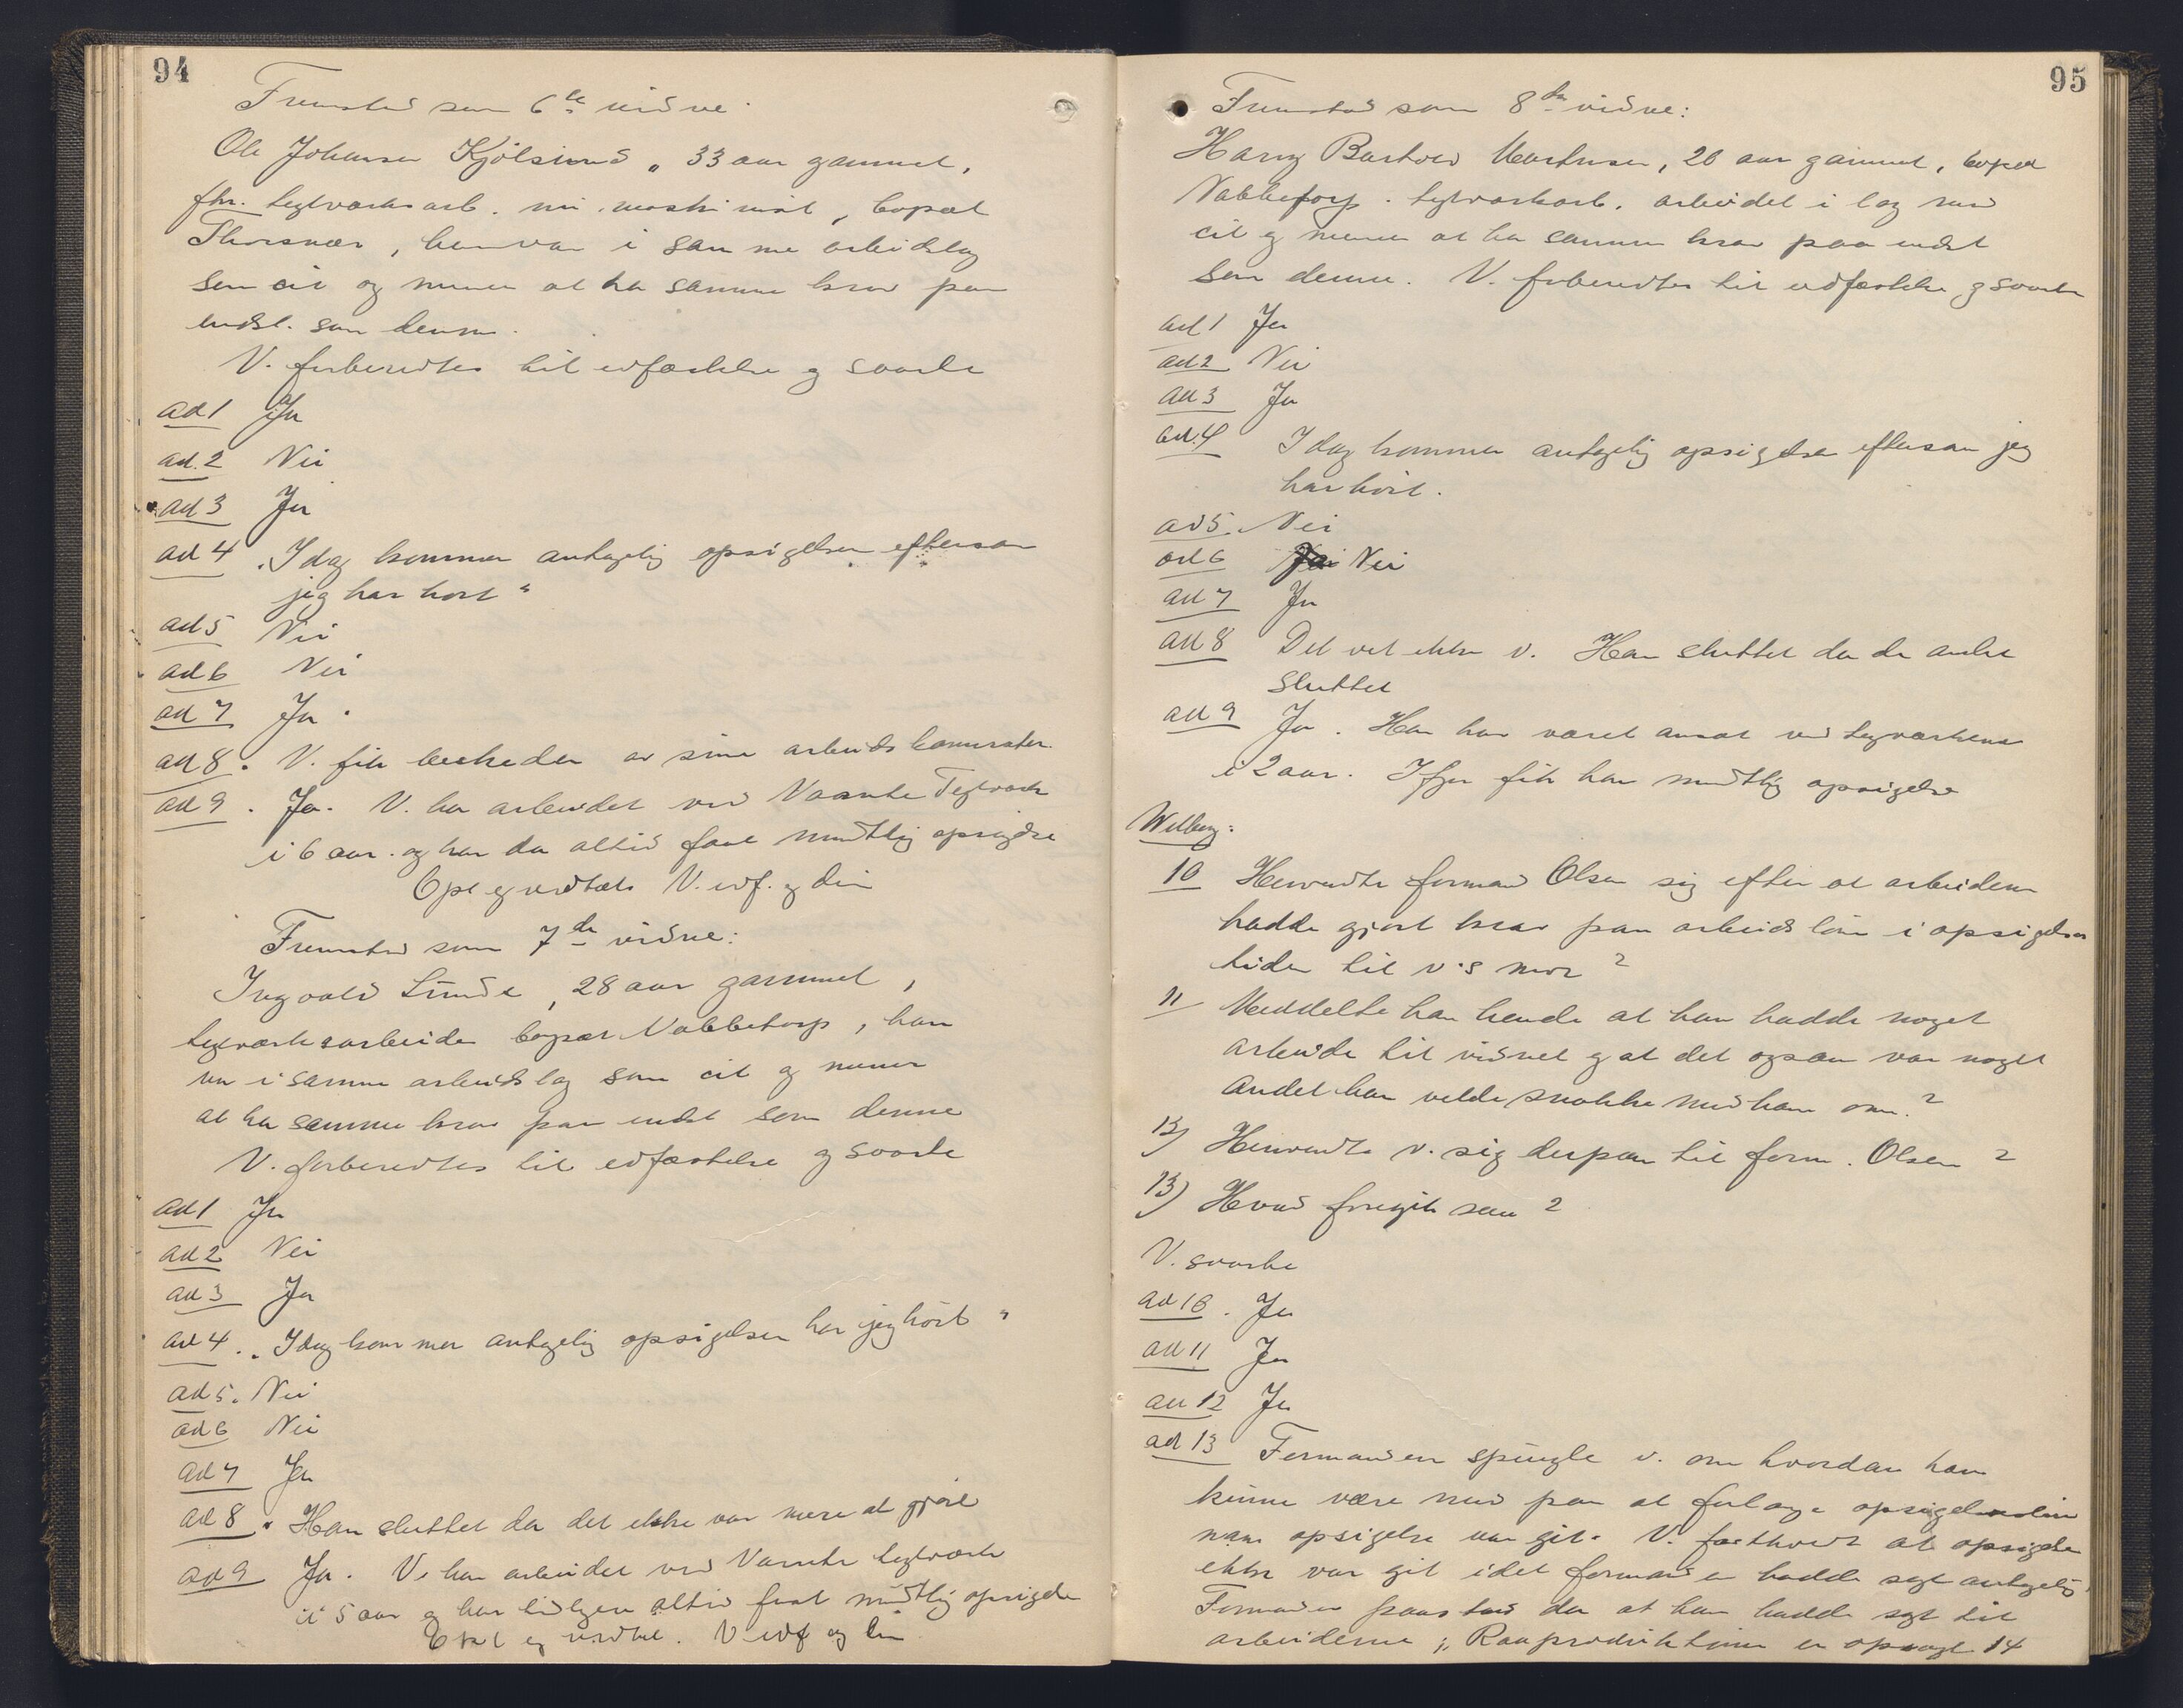 94
Fremstod som 6te vidne
Ole Johansen Kjölsrud, 33 aar gammel,
fhv. teglverksarb. nu maskinist, bopæl
Thorsnæs, han var i samme arbeidslag
som cit og mener at ha samme krav paa
indst. som denne.
V. forberedtes til edfæstelse og svarte
ad 1 Ja
ad. 2 Nei
ad 3 Ja
ad 4 „Idag kommer antagelig opsigelsen eftersom
jeg har hört"
ad 5 Nei
ad 6 Nei
ad 7 Ja.
ad 8. V. fik beskeden av sine arbeidskamerater.
ad 9. Ja. V. har arbeidet ved Teglverk
i 6 aar. og har da altid faat mundtlig opsigelse
Opl og vedtat. V. edf. og dim
Fremstod som 7de vidne:
Ingvald Lunde, 28 aar gammel,
teglverksarbeider bopæl Nabbetorp, han
var i samme arbeidslag som cit og mener
at ha samme krav paa indst som denne
V. forberedtes til edfæstelse og svarte
ad 1 Ja
ad 2 Nei
ad 3 Ja
ad 4. „Idag kommer antagelig opsigelsen har jeg hört"
ad 5. Nei
ad 6 Nei
ad 7 Ja
ad 8. Han sluttet da det ikke var mere at gjöre
ad 9 Ja. V. har arbeidet ved teglverk
i 5 aar og har tidligere altid faat mundtlig opsigelse
Opl og vedtat. V edf og dim
95
Fremstod som 8de vidne:
Harry Bastow Martinsen, 20 aar gammel, bopæl
Nabbetorp. teglverksarb. arbeidet i lag med
cit og mener at ha samme krav paa indst
som denne. V. forberedtes til edfæstelse og svarte
ad 1 Ja
ad 2 Nei
ad 3 Ja
ad. 4 Idag kommer antagelig opsigelse eftersom jeg
har hört.
ad 5. Nei
ad 6 Ja Nei
ad 7 Ja
ad 8 Det vet ikke v. Han sluttet da de andre
sluttet
ad 9 Ja. Han har været ansat ved teglverkene
i 2 aar. Ifjor fik han mundtlig opsigelse
Wilberg:
10 Henvendte formand Olsen sig efter at arbeiderne
hadde gjort krav paa arbeidslön i opsigelses
tiden til v's mor?
11 Meddelte han hende at han hadde noget
arbeide til vidnet og at det ogsaa var noget
andet han vilde snakke med ham om?
12) Henvendte v. sig derpaa til form. Olsen?
13) Hvad foregik saa?
V. svarte
ad 10. Ja
ad 11 Ja
ad 12 Ja
ad 13 Formanden spurgte v. om hvordan han
kunne være med paa at forlange opsigelseslön
naar opsigelse var git. V. fastholdt at opsigelse
ikke var git idet formanden hadde sagt antagelig.
Formanden paastod da at han hadde sagt til
arbeiderne: „Raaproduktionen er opsagt 14